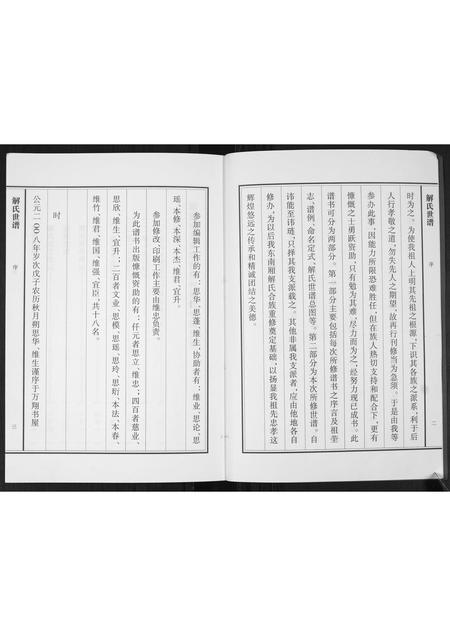 解氏世谱
序
二
时为之。为使我祖人上明其先祖之根源，下识其各族之派系；利于后
人行孝敬之道，勿失先人之期望，故再行刊修当为急须。于是由我等
参办此事，因能力所限恐难胜任，但在族人热切支持和配合下，更有
慷慨之士勇跃资助，只有勉为其难，尽力而为之，经努力现已成书。此
谱书可分为两部分。第一部分主要包括每次所修谱书之序言及祖茔
志、谱例、命名定式、解氏世谱总图等。第二部分为本次所修世谱。自
讳能至讳琏，只择其我支派载之。其他非属我支派者，应由他地各自
修办，为以后我东南厢解氏合族重修奠定基础，以扬显我祖先忠孝这
辉煌悠远之传承和精诚团结之美德。
参加编辑工作的有：思华、思蓬、维生，协助者有：维业、思论、思
瑶、本修、本深、本杰、维君、宜升。
参加修改、印刷工作主要由维忠负责。
为此谱书出版慷慨资助的有：仟元者思立、维忠，四百者慈业、
思欣、维生、宜升；二百者文业、思模、思瑶、思玲、思昕、本法、本春、
维竹、维君、维国、维强、宜臣，共十八名。
时
公元二〇〇八年岁次戊子农历秋月朔思华、维生谨序于万翔书屋
解氏世谱
序
三